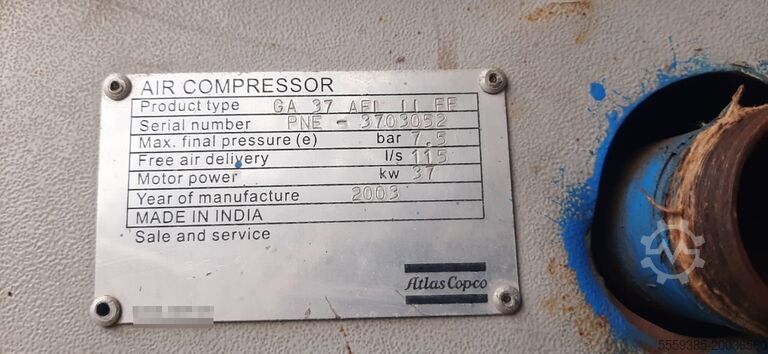 AIR COMPRESSOR
Product type GA 37 AFI II FF
Serial number PNE - 3703052
Max. final pressure (e) bar 7.5
Free air delivery l/s 115
Motor power kw 37
Year of manufacture 2003
MADE IN INDIA
Sale and service
Atlas Copco